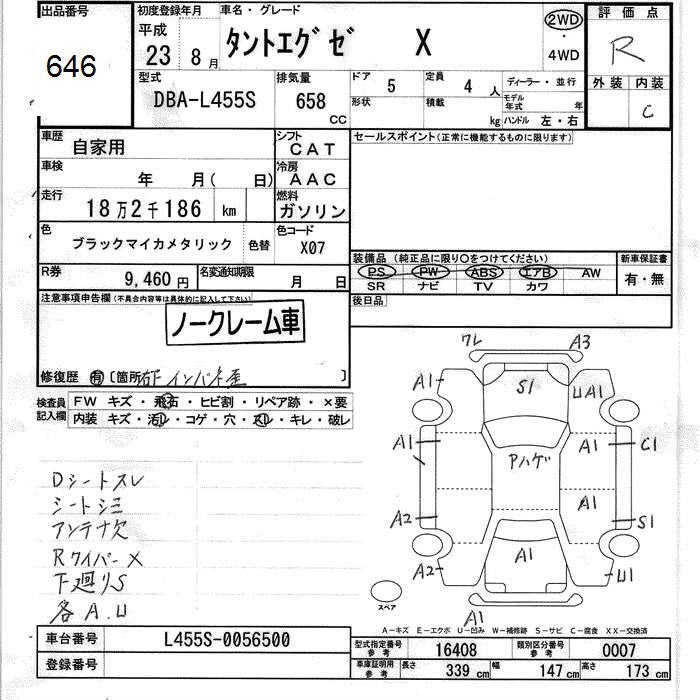 出品番号
646
初度登録年月
平成
23 8 月
車名・グレード
タントエグゼ X
2WD
・
4WD
評価点
R
外装 内装
C
型式
DBA-L455S
排気量
658 CC
ドア 5
定員 4 人
ディーラー・並行
形状
積載 kg
モデル年式 年
ハンドル 左・右
車歴
自家用
シフト
CAT
セールスポイント(正常に機能するものに限ります)
車検
年 月( 日)
冷房
AAC
走行
18万2千186 km
燃料
ガソリン
色
ブラックマイカメタリック
色替
色コード
X07
装備品 (純正品に限り○をつけてください)
新車保証書
PS PW ABS エアB AW
有・無
SR ナビ TV カワ
R券
9,460 円
名変通知期限
月 日
後日品
注意事項申告欄(不具合内容等は具体的に記入して下さい)
ノークレーム車
修復歴 有 〔箇所 右F インパネ歪 〕
検査員記入欄
FW キズ・飛石・ヒビ割・リペア跡・×要
内装 キズ・汚レ・コゲ・穴・スレ・キレ・破レ
Dシートスレ
シートシミ
アンテナ欠
Rワイパー×
下廻りS
各A.U
ワレ A3
A1 S1 UA1
A1 Aハゲ A1 C1
A1
A2 S1
A2 A1 U1
スペア
A1
A-キズ E-エクボ U-凹み W-補修跡 S-サビ C-腐食 XX-交換済
車台番号
L455S-0056500
登録番号
型式指定番号 参考
16408
類別区分番号 参考
0007
車庫証明用 参考
長さ 339 cm
幅 147 cm
高さ 173 cm